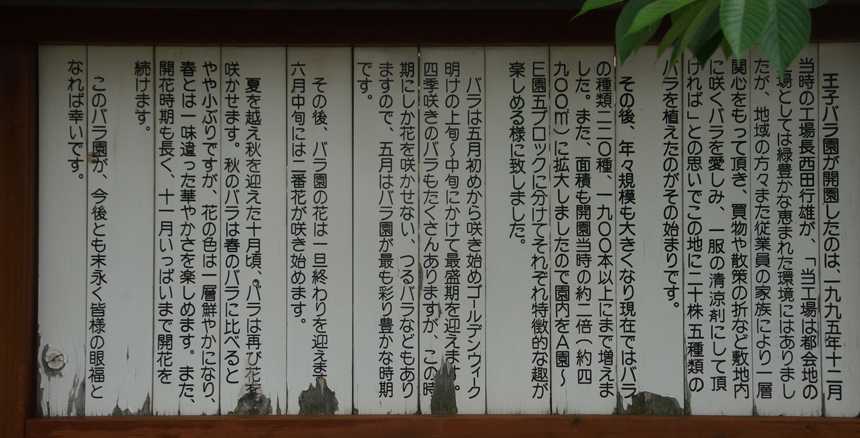 王子バラ園が開園したのは、一九九五年十二月
当時の工場長西田行雄が、「当工場は都会地の
場としては緑豊かな恵まれた環境にはありまし
たが、地域の方々また従業員の家族により一層
関心をもって頂き、買物や散策の折など敷地内
に咲くバラを愛しみ、一服の清涼剤にして頂
ければ」との思いでこの地に二十株五種類の
バラを植えたのがその始まりです。
その後、年々規模も大きくなり現在ではバラ
の種類二二〇種、一九〇〇本以上にまで増えま
した。また、面積も開園当時の約二倍（約四
九〇〇㎡）に拡大しましたので園内をA園〜
E園五ブロックに分けてそれぞれ特徴的な趣が
楽しめる様に致しました。
バラは五月初めから咲き始めゴールデンウィーク
明けの上旬〜中旬にかけて最盛期を迎えます。
四季咲きのバラもたくさんありますが、この時
期にしか花を咲かせない、つるバラなどもあり
ますので、五月はバラ園が最も彩り豊かな時期
です。
その後、バラ園の花は一旦終わりを迎えます
六月中旬には二番花が咲き始めます。
夏を越え秋を迎えた十月頃、バラは再び花を
咲かせます。秋のバラは春のバラに比べると
やや小ぶりですが、花の色は一層鮮やかになり、
春とは一味違った華やかさを楽しめます。また、
開花時期も長く、十一月いっぱいまで開花を
続けます。
このバラ園が、今後とも末永く皆様の眼福と
なれば幸いです。